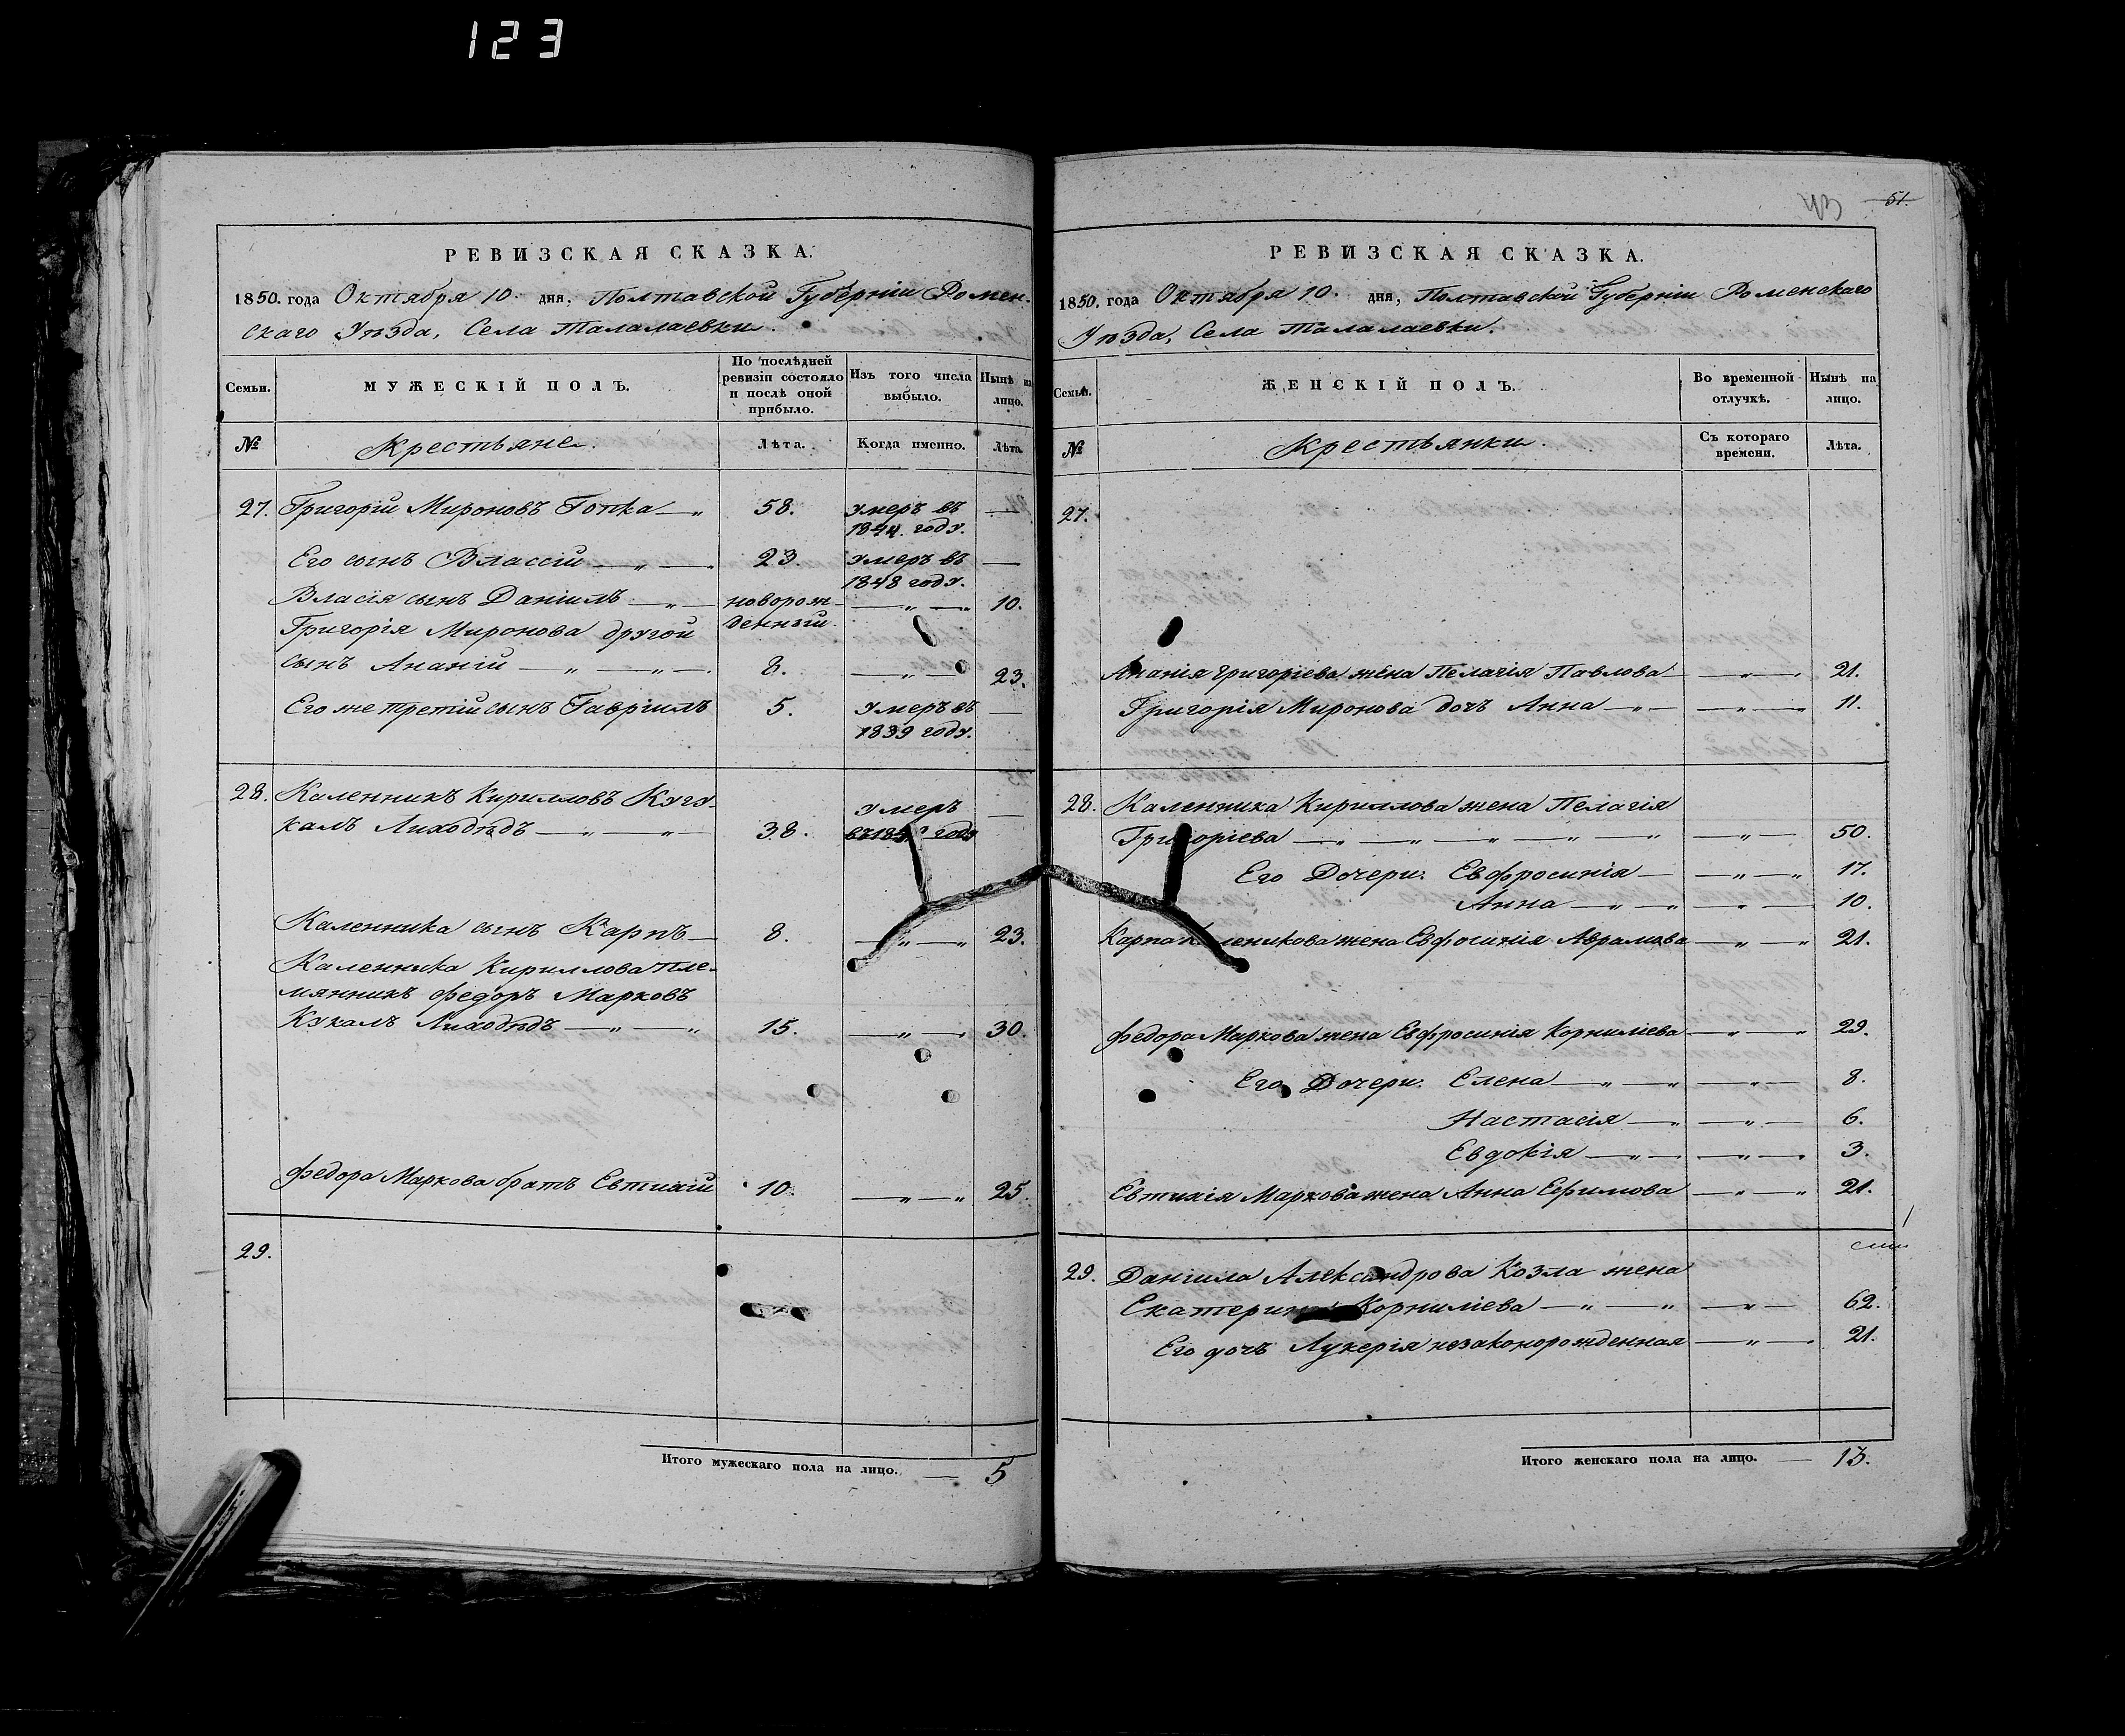 123
РЕВИЗСКАЯ СКАЗКА.
1850. года Октября 10. дня, Полтавской Губерніи Ромен-
скаго Уѣзда, Села Талалаевки.
Семьи.
МУЖЕСКІЙ ПОЛЪ.
По послѣдней ревизіи состояло и послѣ оной прибыло.
Изъ того числа выбыло.
Нынѣ на лицо.
№
Крестьяне.
Лѣта.
Когда именно.
Лѣта.
27. Григорій Мироновъ 58. умеръ въ
1844. году.
Его сынъ Влассій 23. умеръ въ
1848 году.
Власія сынъ Даніилъ новорож- 10.
Григорія Миронова другой денный.
сынъ Ананій 8. 23.
Его же третій сынъ Гавріилъ 5. умеръ въ
1839 году.
28. Каленникъ Кирилловъ Кугу- умеръ
калъ Лиходѣдъ 38. году
Каленника сынъ Карпъ 8. 23.
Каленника Кириллова пле-
мянникъ Федоръ Марковъ
Кукалъ Лиходѣдъ 15. 30.
Федора Маркова братъ Евтихій 10. 25.
29.
Итого мужескаго пола на лицо. 5
51.
РЕВИЗСКАЯ СКАЗКА.
1850. года Октября 10. дня, Полтавской Губерніи Роменскаго
Уѣзда, Села Талалаевки.
Семьи.
ЖЕНСКІЙ ПОЛЪ.
Во временной отлучкѣ.
Нынѣ на лицо.
№
Крестьянки.
Съ котораго времени.
Лѣта.
27.
Ананія Григоріева жена Пелагія Павлова 21.
Григорія Миронова дочь Анна 11.
28. Каленника Кириллова жена Пелагія
Григоріева 50.
Его Дочери: Евфросинія 17.
Анна 10.
Карпа Каленикова жена Евфосинія Аврамова 21.
Федора Маркова жена Евфросинія Корниліева 29.
Его Дочери: Елена 8.
Настасія 6.
Евдокія 3.
Евтихія Маркова жена Анна Ефимова 21.
29. Даніила Александрова Козла жена
Екатерина Корниліева 62.
Его дочь Лукерія незаконорожденная 21.
Итого женскаго пола на лицо. 13.